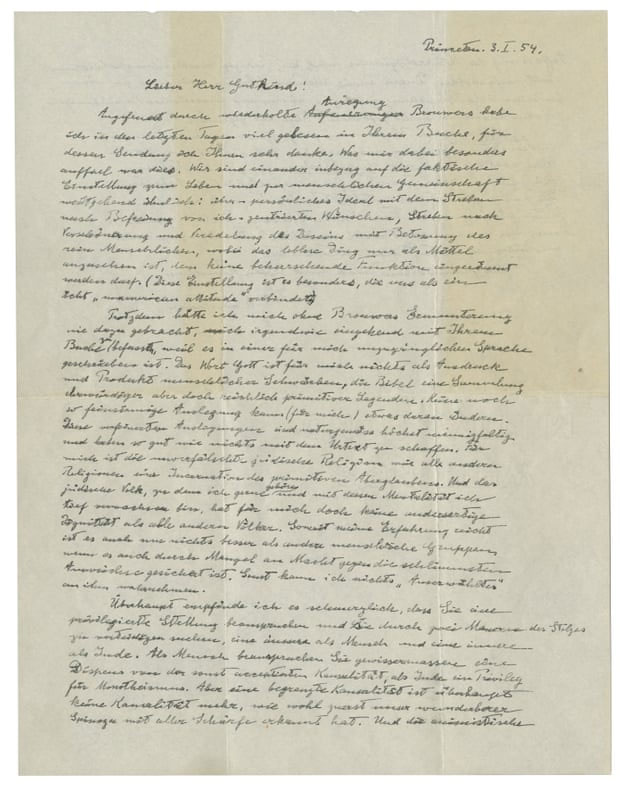 Princeton. 3. I. 54.
Lieber Herr Gutkind!
Anregung
Angefeuert durch wiederholte Brouwers habe
ich in den letzten Tagen viel gelesen in Ihrem Buche, für
dessen Sendung ich Ihnen sehr danke. Was mir dabei besonders
auffiel war dies. Wir sind einander inbezug auf die faktische
Einstellung zum Leben und zur menschlichen Gemeinschaft
weitgehend ähnlich: über-persönliches Ideal mit dem Streben
nach Befreiung von ich-zentrierten Wünschen, Streben nach
Verschönerung und Veredelung des Daseins mit Betonung des
rein Menschlichen, wobei das leblose Ding nur als Mittel
anzusehen ist, dem keine beherrschende Funktion eingeräumt
werden darf. (Diese Einstellung ist es besonders, die uns als ein
echt „unamerican attitude" verbindet)
Trotzdem hätte ich mich ohne Brouwers Ermunterung
nie dazu gebracht, mich irgendwie eingehend mit Ihrem
Buche zu befassen, weil es in einer für mich unzugänglichen Sprache
geschrieben ist. Das Wort Gott ist für mich nichts als Ausdruck
und Produkt menschlicher Schwächen, die Bibel eine Sammlung
ehrwürdiger aber doch reichlich primitiver Legenden. Keine noch
so feinsinnige Auslegung kann (für mich) etwas daran ändern.
Diese verfeinerten Auslegungen sind naturgemäss höchst mannigfaltig
und haben so gut wie nichts mit dem Urtext zu schaffen. Für
mich ist die unverfälschte jüdische Religion wie alle anderen
Religionen eine Incarnation des primitiven Aberglaubens. Und das
gehöre
jüdische Volk, zu dem ich gerne und mit dessen Mentalität ich
tief verwachsen bin, hat für mich doch keine andersartige
Dignität als alle anderen Völker. Soweit meine Erfahrung reicht
ist es auch um nichts besser als andere menschliche Gruppen,
wenn es auch durch Mangel an Macht gegen die schlimmsten
Auswüchse gesichert ist. Sonst kann ich nichts „Auserwähltes"
an ihm wahrnehmen.
Überhaupt empfinde ich es schmerzlich, dass Sie eine
privilegierte Stellung beanspruchen und sie durch zwei Mauern des Stolzes
zu verteidigen suchen, eine äussere als Mensch und eine innere
als Jude. Als Mensch beanspruchen Sie gewissermassen einen
Dispens von der sonst acceptierten Kausalität, als Jude ein Privileg
für Monotheismus. Aber eine begrenzte Kausalität ist überhaupt
keine Kausalität mehr, wie wohl zuerst unser wunderbarer
Spinoza mit aller Schärfe erkannt hat. Und die animistische